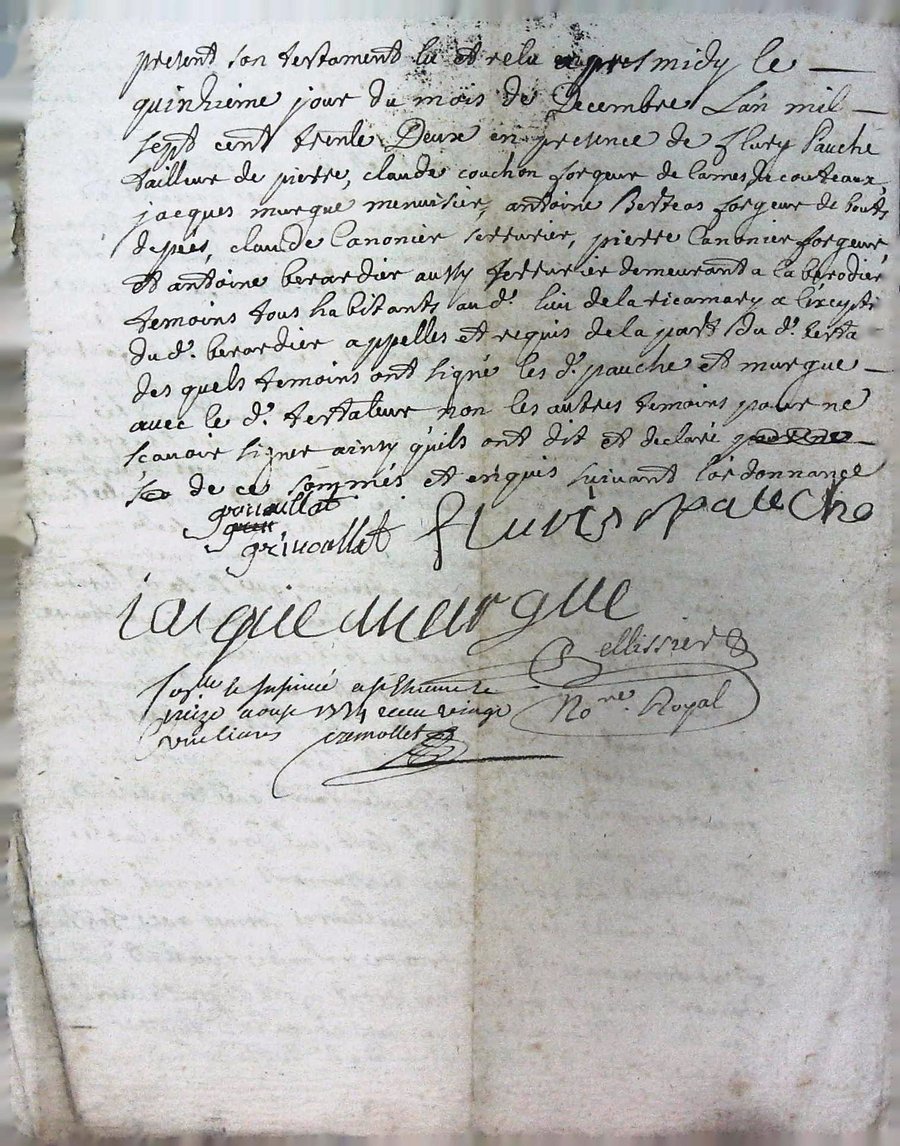 present son testament lu et relu apres midy le
quinzieme jour du mois de Decembre L'an mil
sept cent trente Deux en presence de flury Pauche
tailleur de pierre, claude couchon forgeur de lames de couteaux,
jacques murgue menuisier, antoine Berteas forgeur de bouts
depées, claude Canonier serrurier, pierre Canonier forgeur
et antoine berardier aussy serrurier demeurant a la berodiere
temoins tous habitants au d. lieu de la ricamary a l'excepti
du d. berardier appelles et requis de la part du d. testa
des quels temoins ont signé les d. pauche et murgue
avec le d. testateur non les autres temoins pour ne
scavoir signer ainsy qu'ils ont dit et declaré
de ce sommés et enquis suivant l'ordonnance
grivollat
fluris pauche
iaique murgue
Pellissier
No.re Royal
treize aoust 1734 vingt